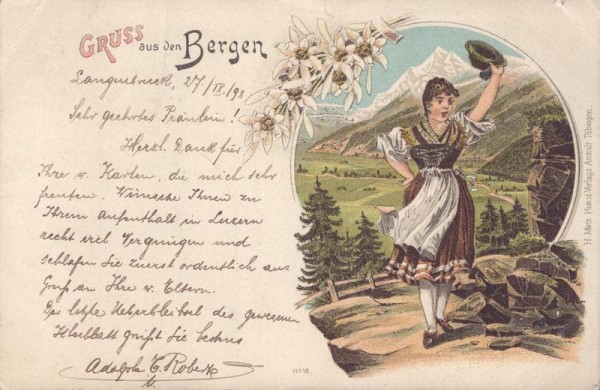 GRUSS aus den Bergen
Langenbruck, 27/IX 98
Sehr geehrtes Fräulein!
Herzl. Dank für
Ihre w. Karten, die mich sehr
freuten. Wünsche Ihnen zu
Ihrem Aufenthalt in Luzern
recht viel Vergnügen und
schlafen Sie zuerst ordentlich aus
Gruß an Ihre w. Eltern.
Der letzte Ueberbleibsel des gewesenen
Kleeblatt grüßt Sie bestens
Adolph
No 18.
H. Metz Kunst-Verlags Anstalt Tübingen.